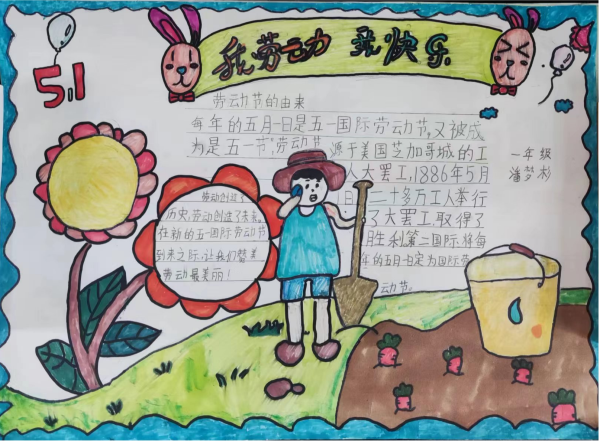 我劳动 我快乐
5.1
劳动节的由来
每年的五月一日是五一国际劳动节,又被成
为是五一节,劳动节 源于美国芝加哥城的工
人大罢工,1886年5月
1日 二十多万工人举行
了大罢工,取得了
胜利第二国际,将每
年的五月一日定为国际劳
动节。
一年级
潘梦杉
劳动创造了
历史,劳动创造了未来,
在新的五一国际劳动节
到来之际,让我们赞美
劳动最美丽!